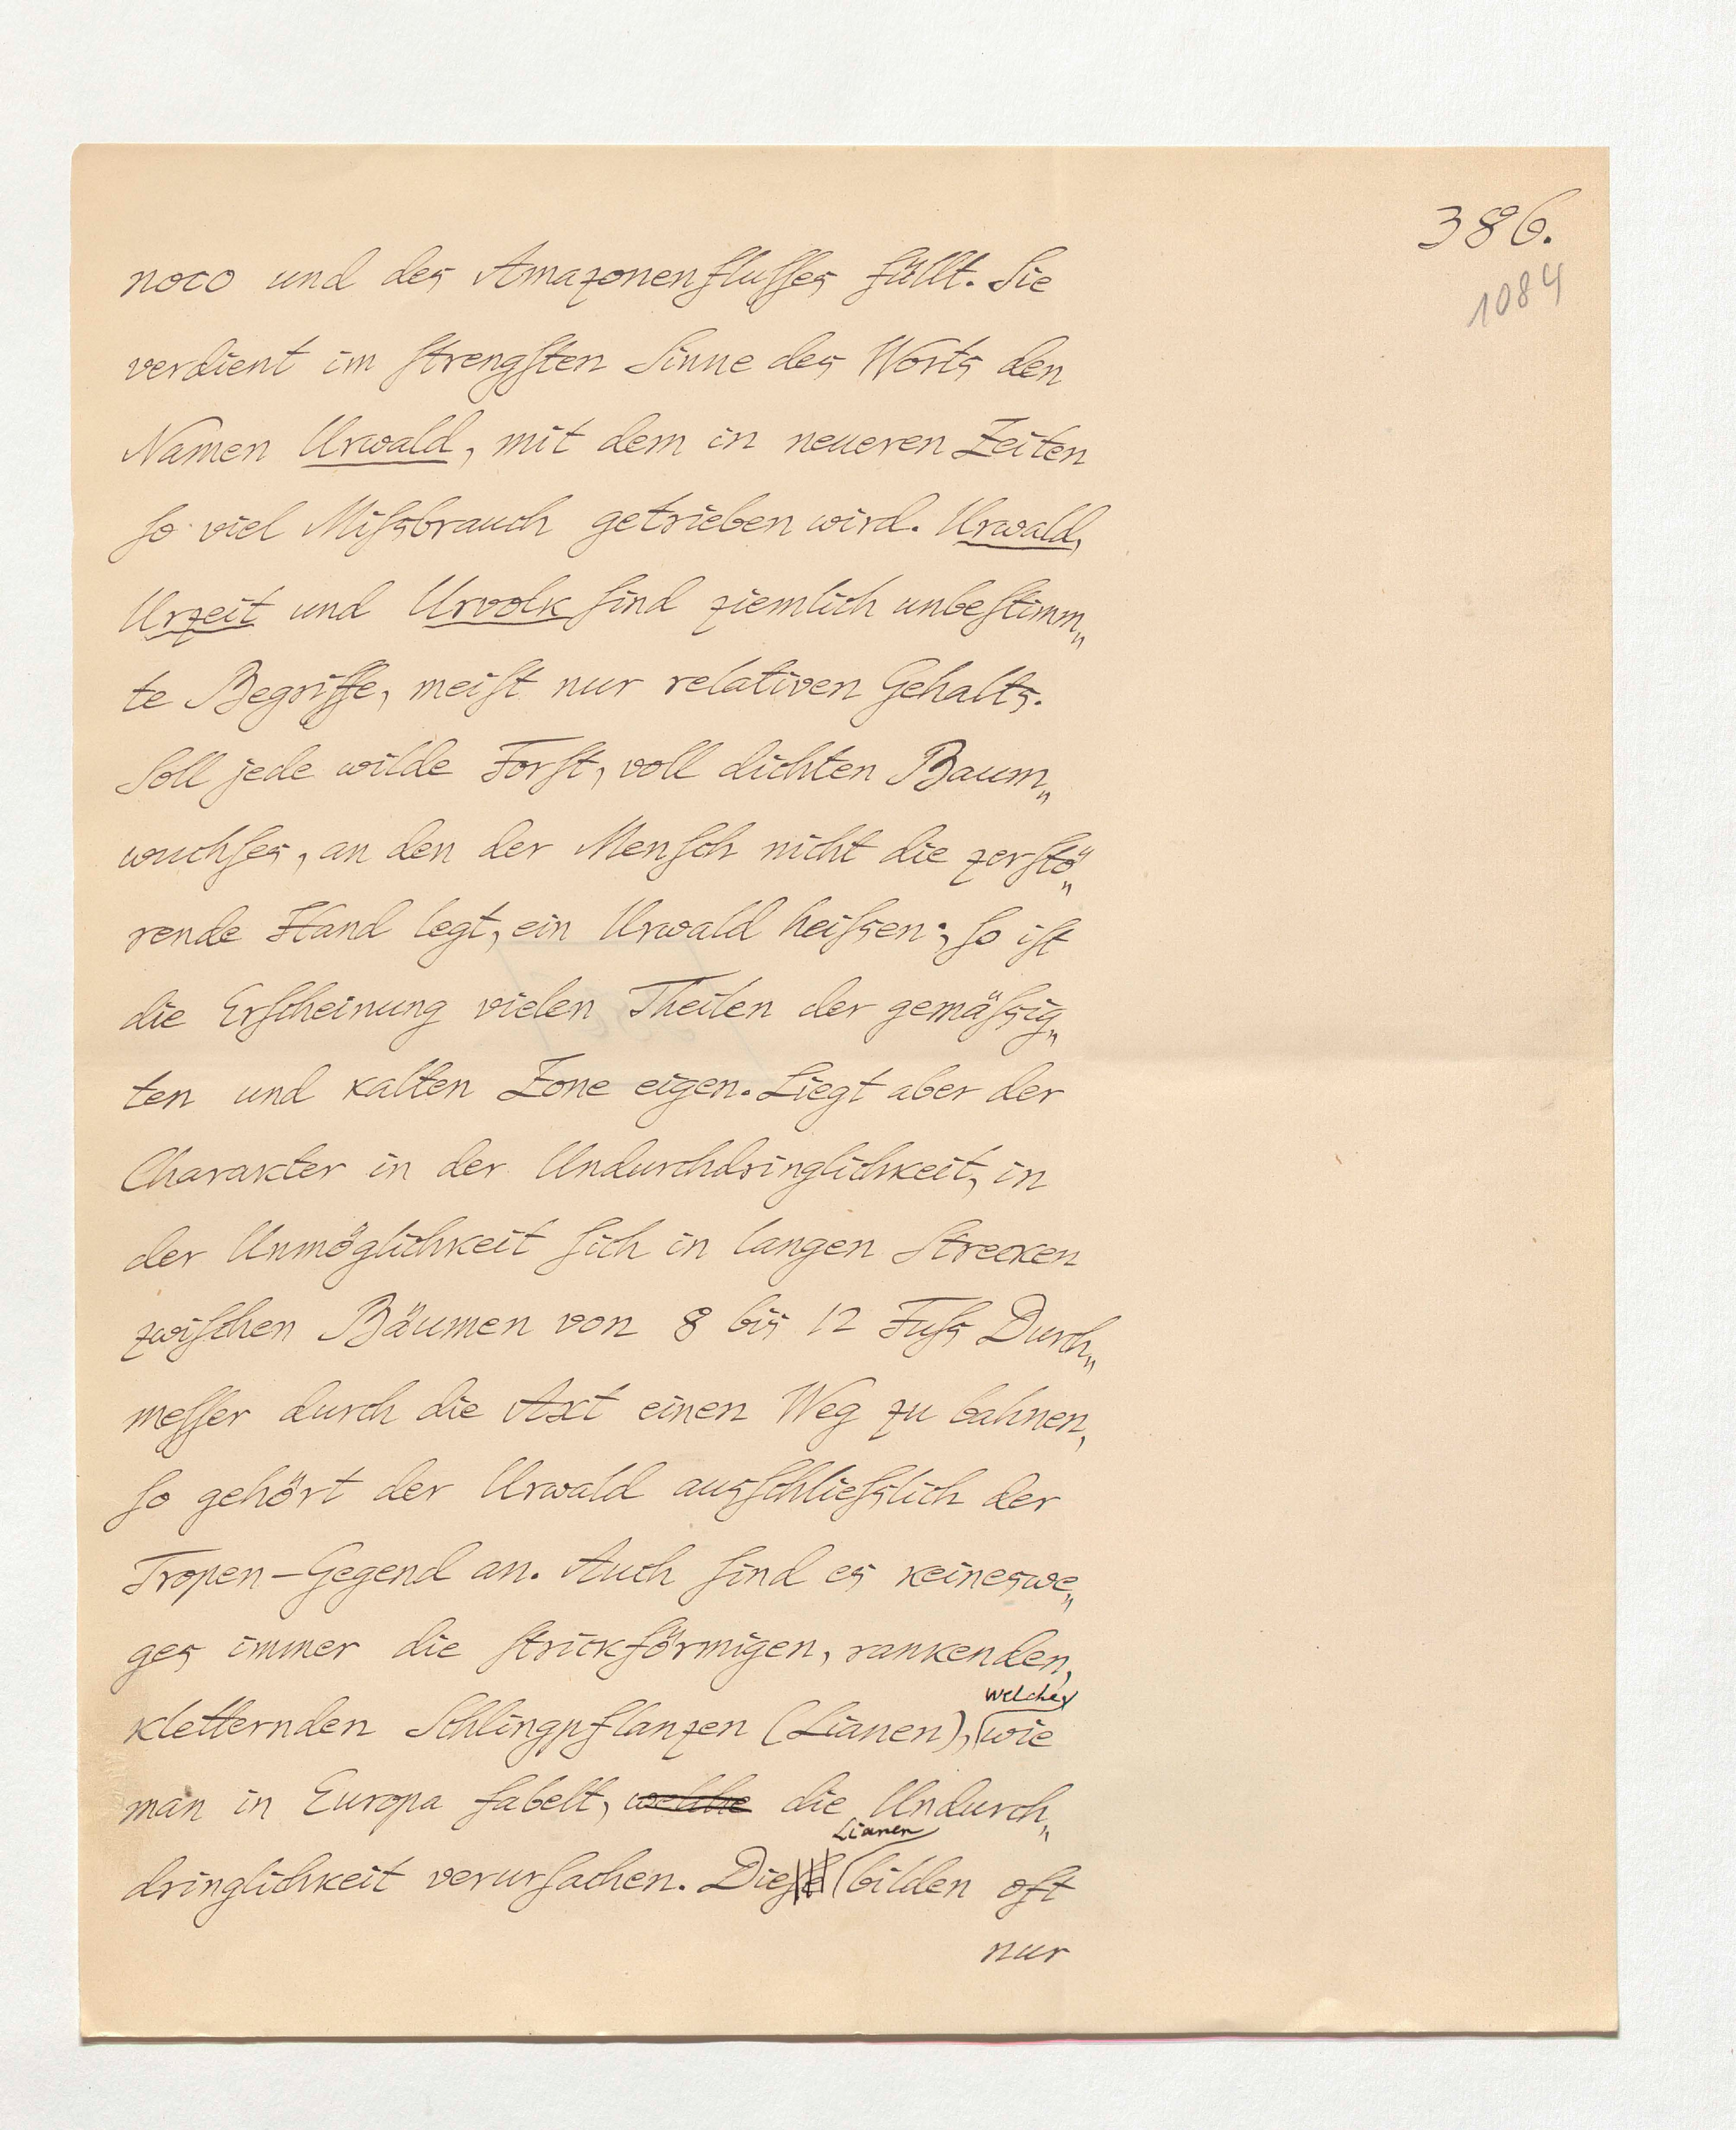 386.
1084
noco und des Amazonenfluſſes füllt. Sie
verdient im ſtrengſten Sinne des Worts den
Namen Urwald, mit dem in neueren Zeiten
ſo viel Miſsbrauch getrieben wird. Urwald,
Urzeit und Urvolk ſind ziemlich unbeſtimm„
te Begriffe, meiſt nur relativen Gehalts.
Soll jede wilde Forſt, voll dichten Baum„
wuchſes, an den der Menſch nicht die zerſtö„
rende Hand legt, ein Urwald heiſsen; ſo iſt
die Erſcheinung vielen Theilen der gemäſsig„
ten und kalten Zone eigen. Liegt aber der
Charakter in der Undurchdringlichkeit, in
der Unmöglichkeit ſich in langen Strecken
zwiſchen Bäumen von 8 bis 12 Fuſs Durch„
meſſer durch die Axt einen Weg zu bahnen,
ſo gehört der Urwald ausſchlieſslich der
Tropen-Gegend an. Auch ſind es keineswe„
ges immer die ſtrickförmigen, rankenden,
welche
kletternden Schlingpflanzen (Lianen), wie
man in Europa fabelt, welche die Undurch„
Lianen
dringlichkeit verurſachen. Dieſe bilden oft
nur